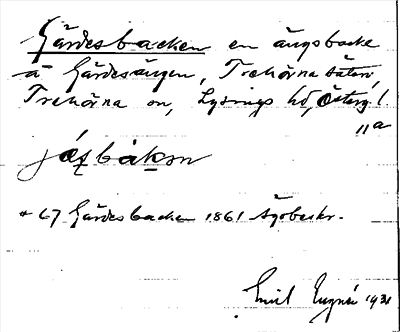 Gärdesbacken en ängsbacke
å Gärdesängen, Trehörna säteri,
Trehörna sn, Lysings hd, Österg.l
11a
* 67 Gärdesbacken 1861 ägobeskr.
Emil 1931